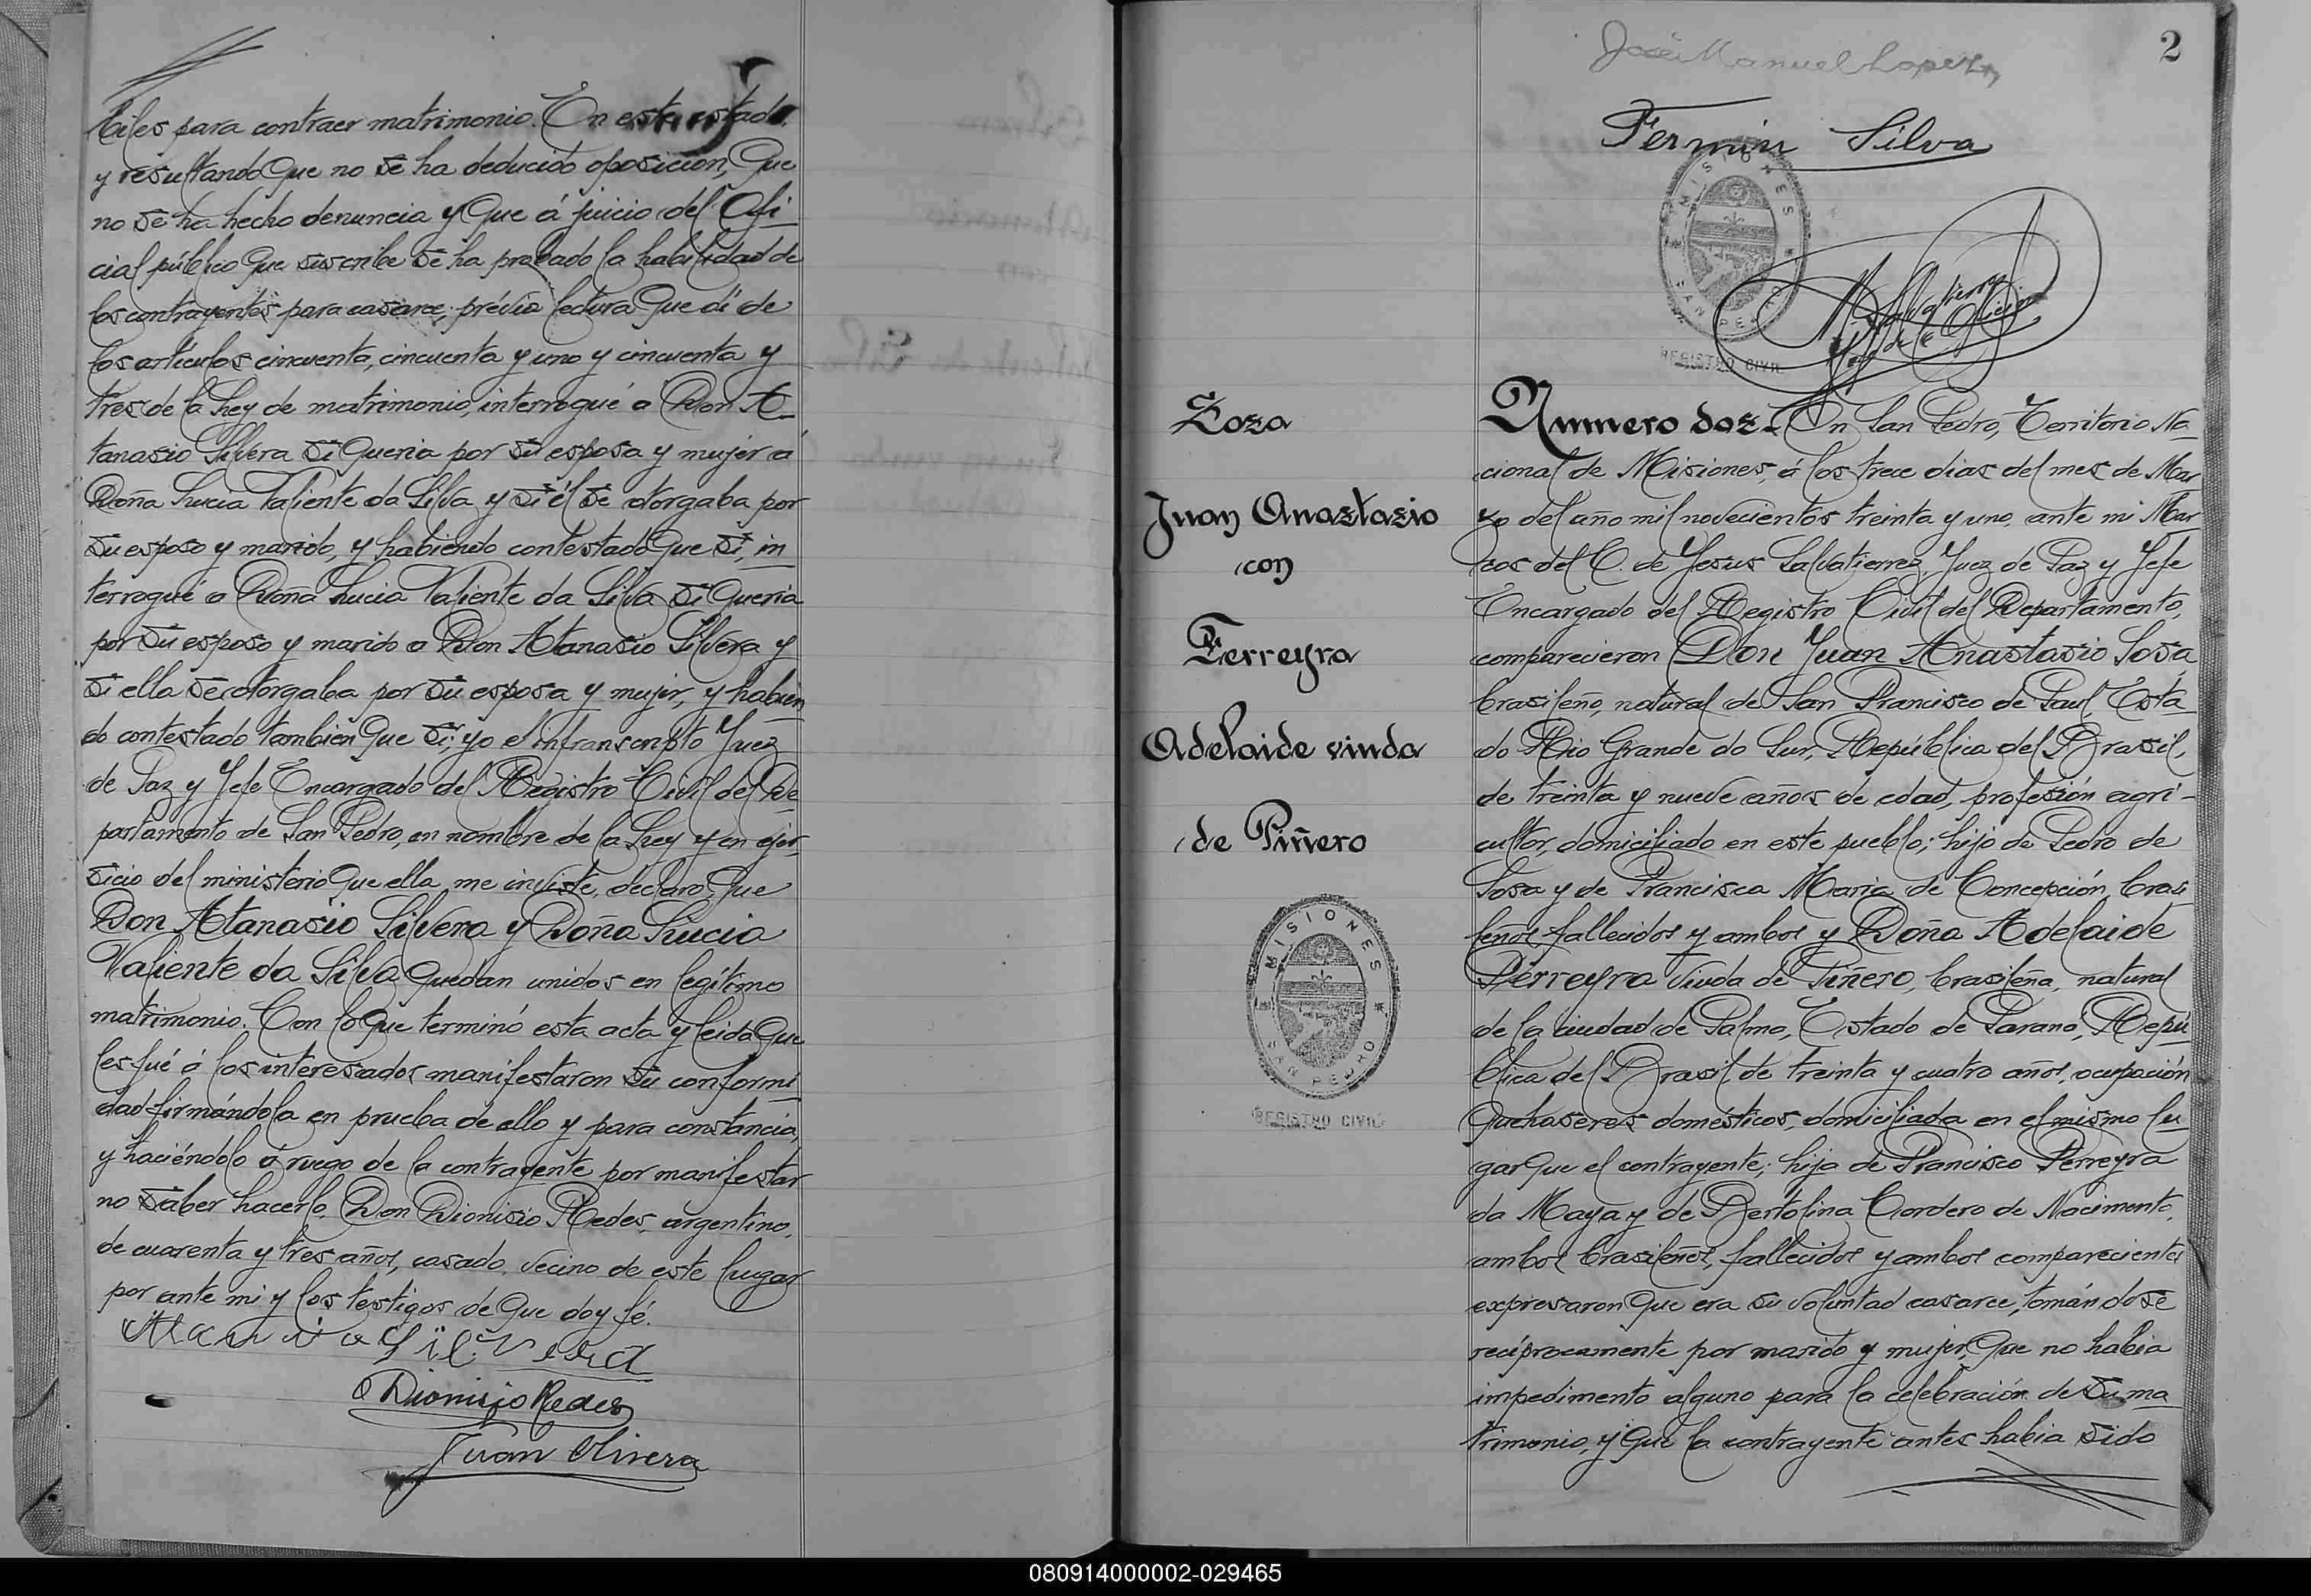 biles para contraer matrimonio. En este estado,
y resultando que no se ha deducido oposicion, que
no se ha hecho denuncia y que á juicio del Ofi-
cial público que suscribe se ha probado la habilidad de
los contrayentes para casarce; prévia lectura que dí de
los artículos cincuenta, cincuenta y uno y cincuenta y
tres de la Ley de matrimonio, interrogué a Don A-
tanasio Silvera si queria por su esposa y mujer a
Doña Lucia Valiente da Silva y si él se otorgaba por
su esposo y marido, y habiendo contestado que si, in
terrogué a Doña Lucia Valiente da Silva si queria
por su esposo y marido a Don Atanasio Silvera y
si ella se otorgaba por su esposa y mujer, y habien
do contestado tambien que si; yo el infranscripto Juez
de Paz y Jefe Encargado del Registro Civil del De
partamento de San Pedro, en nombre de la Ley y en ejer
sicio del ministerio que ella me inviste, declaro, que
Don Atanasio Silvera y Doña Lucia
Valiente da Silva quedan unidos en legítimo
matrimonio. Con lo que terminó esta acta y leida que
les fué á los interesados manifestaron su conformi
dad firmándola en prueba de ello y para constancia,
y haciéndolo á ruego de la contrayente por manifestar
no saber hacerlo, Don Dionisio Redes, argentino,
de cuarenta y tres años, casado, vecino de este lugar
por ante mi y los testigos de que doy fé.
Atanasio Silvera
Dionisio Redes
Juan Olivera
2
José Manuel Lopez
Fermin Silva
MISIONES
SAN PEDRO
REGISTRO CIVIL
M. Salvatierra
Jefe de la Oficina
Zoza
Juan Anastasio
con
Ferreyra
Adelaide viuda
de Piñero
MISIONES
SAN PEDRO
REGISTRO CIVIL
Numero dos. En San Pedro, Territorio Na
cional de Misiones, á los trece dias del mes de Mar
zo del año mil novecientos treinta y uno, ante mi Mar
cos del C. de Jesus Salvatierrez, Juez de Paz y Jefe
Encargado del Registro Civil del Departamento,
comparecieron Don Juan Anastasio Sosa,
brasileño, natural de San Francisco de Paul Esta
do Rio Grande do Sur, República del Brasil,
de treinta y nueve años de edad, profesión agri-
cultor, domiciliado en este pueblo; hijo de Pedro de
Sosa y de Francisca Maria de Concepción, brasi
leños fallecidos y ambos y Doña Adelaide
Ferreyra viuda de Piñero, brasileña, natural
de la ciudad de Palmo, Estado de Paraná, Repú
blica del Brasil, de treinta y cuatro años, ocupación
quehaseres domésticos, domiciliada en el mismo lu
gar que el contrayente; hija de Francisco Ferreyra
da Maya y de Bertolina Cordero de Nacimento,
ambos brasileños, fallecidos y ambos comparecientes
expresaron que era su voluntad casarce, tomándose
recíprocamente por marido y mujer, que no habia
impedimento alguno para la celebración de su ma
trimonio, y que la contrayente antes habia sido
080914000002-029465